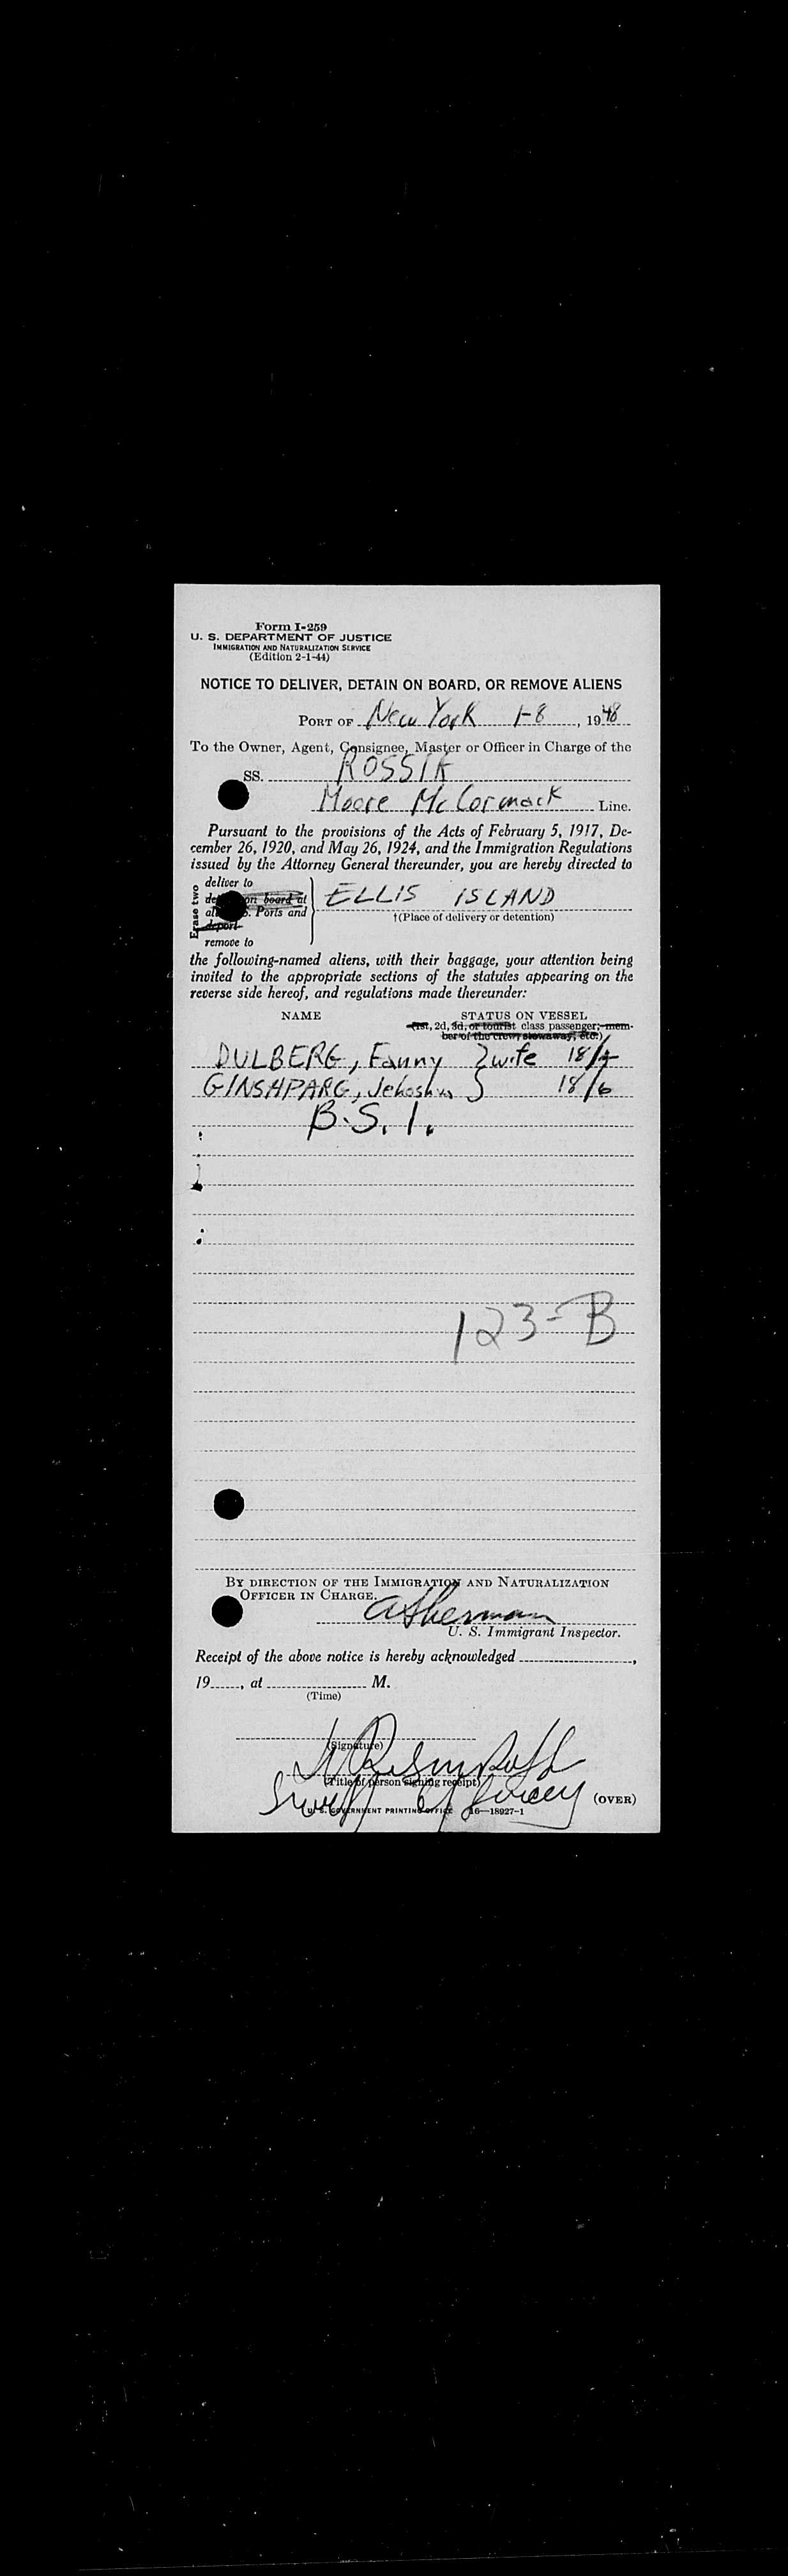 Form I-259
U. S. DEPARTMENT OF JUSTICE
IMMIGRATION AND NATURALIZATION SERVICE
(Edition 2-1-44)
NOTICE TO DELIVER, DETAIN ON BOARD, OR REMOVE ALIENS
PORT OF New York 1-8, 1948
To the Owner, Agent, Consignee, Master or Officer in Charge of the
SS. ROSSIA
Moore McCormack Line.
Pursuant to the provisions of the Acts of February 5, 1917, De-
cember 26, 1920, and May 26, 1924, and the Immigration Regulations
issued by the Attorney General thereunder, you are hereby directed to
Erase two
deliver to
on board at
Ports and
deport
remove to
ELLIS ISLAND
†(Place of delivery or detention)
the following-named aliens, with their baggage, your attention being
invited to the appropriate sections of the statutes appearing on the
reverse side hereof, and regulations made thereunder:
NAME STATUS ON VESSEL
(1st, 2d, 3d, or tourist class passenger; mem-
ber of the crew, stowaway, etc.)
DULBERG, Fanny } wife 18/7
GINSHPARG, Jehoshua } 18/6
B.S.I.
123-B
BY DIRECTION OF THE IMMIGRATION AND NATURALIZATION
OFFICER IN CHARGE.
A Sherman
U. S. Immigrant Inspector.
Receipt of the above notice is hereby acknowledged ,
19 , at M.
(Time)
(Signature)
(Title of person signing receipt)
(OVER)
U. S. GOVERNMENT PRINTING OFFICE 16—18927-1